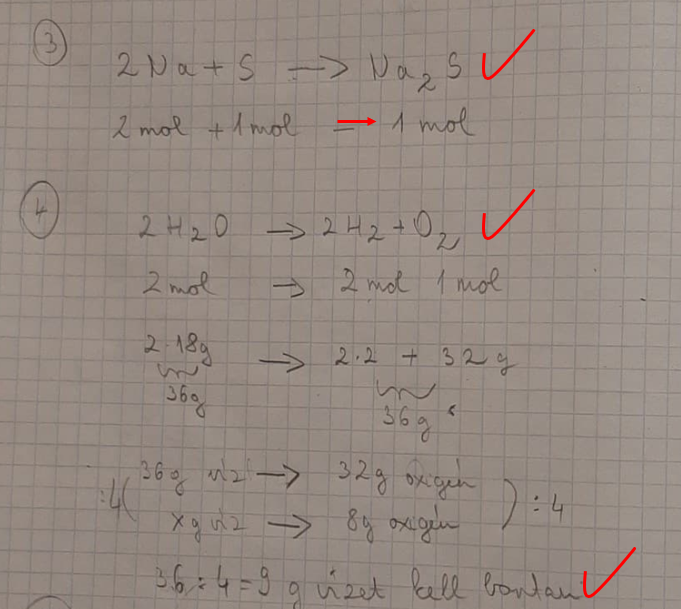 3
2Na + S → Na₂S
2 mol + 1 mol = → 1 mol
4
2H₂O → 2H₂ + O₂
2 mol → 2 mol 1 mol
2·18g → 2·2 + 32g
36g 36g
36g víz → 32g oxigén
:4( ) :4
xg víz → 8g oxigén
36 : 4 = 9 g vizet kell bontani